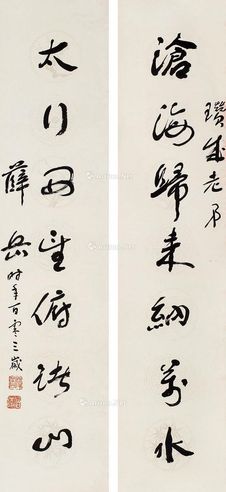 瓒成老弟
滄海歸来納萬水
太行四望俯諸山
薛岳時年百零三歲